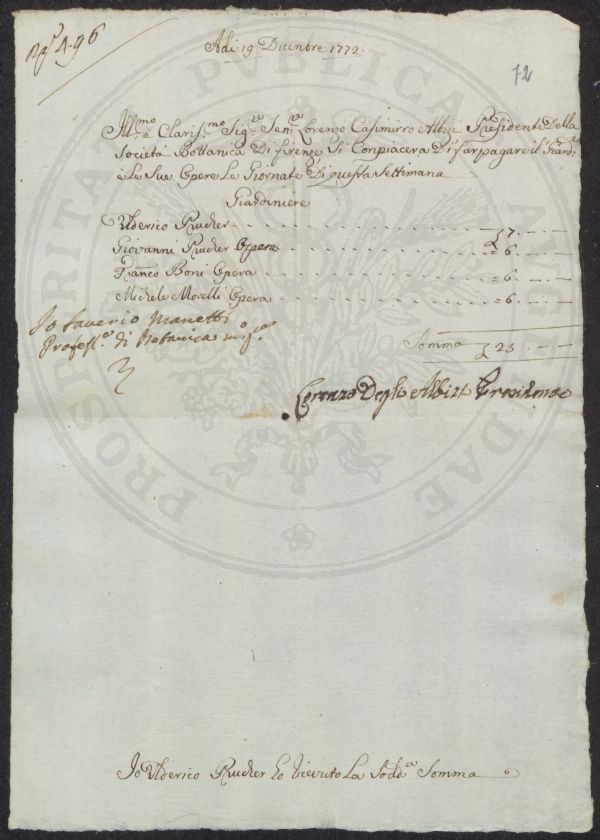 N° 496
Adì 19 Dicinbre 1772.
72
Ill.mo e Claris.mo Sig.re Sen.re Lorenzo Casimirro Albizi Presidente Della
Società Bottanica Di firenze Si Conpiacera Di far pagare il Giard.e
e Le Sue Opere Le Giornate Di questa Settimana
Giardiniere
Ulderico Prucker 7. — —
Giovanni Prucker Opera = 6. — —
Franco Boni Opera = 6 — —
Michele Morelli Opera = 6. — —
Io Saverio Manetti
Profess.e di Botanica m.o p.o
Somma 25 — —
Lorenzo Degli Albizi Presidente
Io Ulderico Prucker Ho Riceuto La Sodd.a Somma
PVBLICA
PROSPERITATI
AVGENDAE